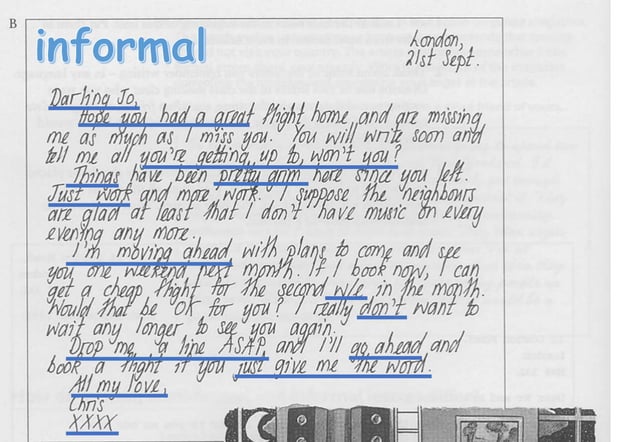 B
informal
London,
21st Sept.
Darling Jo,
Hope you had a great flight home, and are missing
me as much as I miss you. You will write soon and
tell me all you're getting up to, won't you?
Things have been pretty grim here since you left.
Just work and more work. I suppose the neighbours
are glad at least that I don't have music on every
evening any more.
I'm moving ahead with plans to come and see
you one weekend next month. If I book now, I can
get a cheap flight for the second w/e in the month.
Would that be OK for you? I really don't want to
wait any longer to see you again.
Drop me a line ASAP and I'll go ahead and
book a flight if you just give me the word.
All my love,
Chris
XXXX